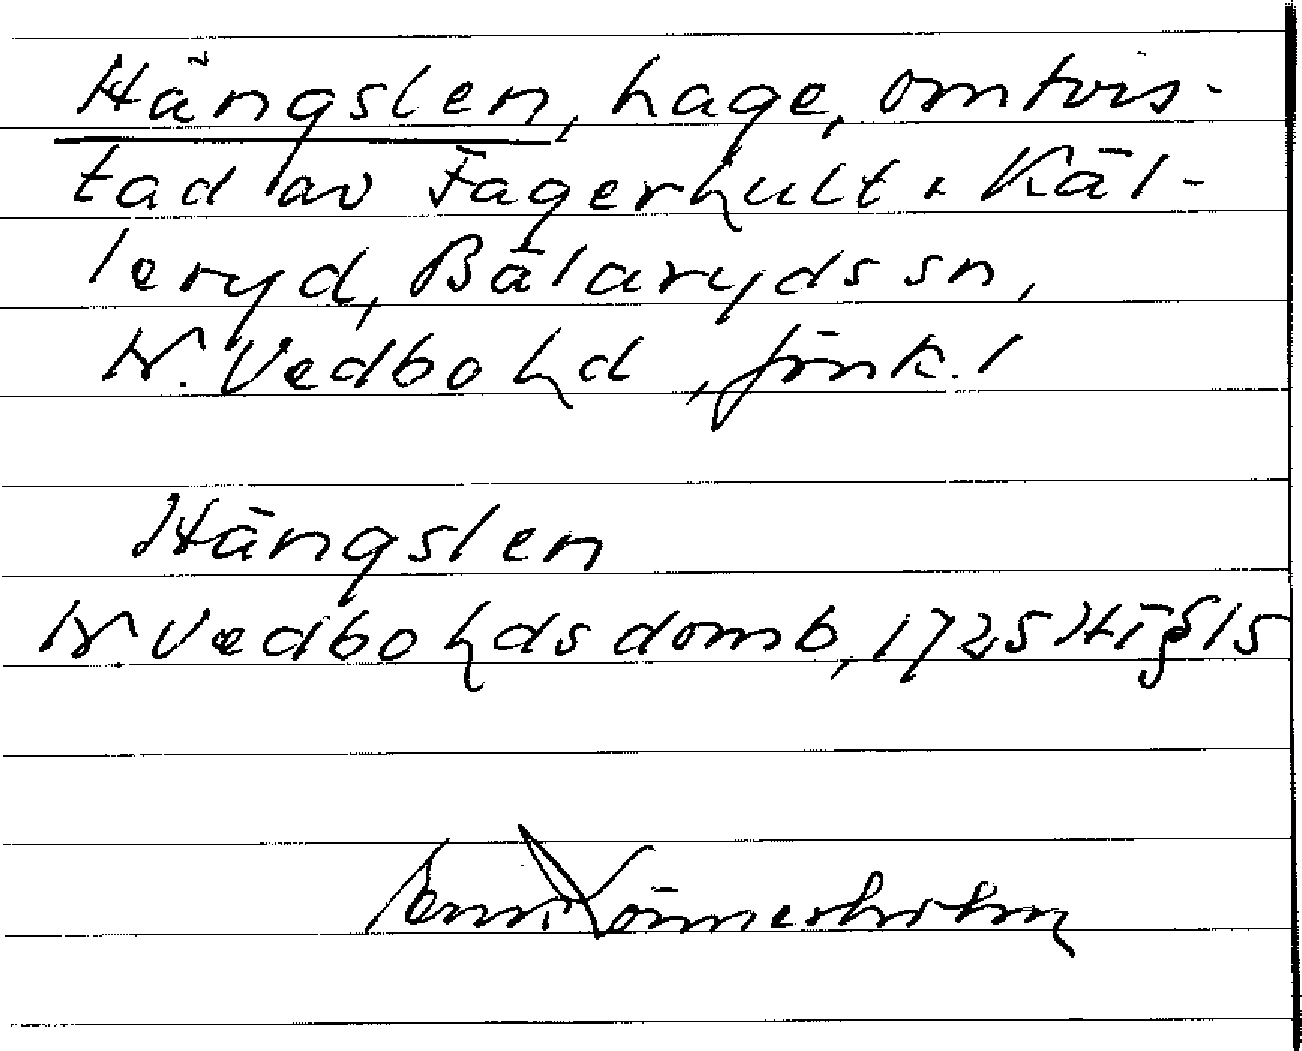 Hängslen, hage, omtvis-
tad av Fagerhult & Käl-
leryd, Bälaryds sn,
N. Vedbo hd, Jönk. l
Hängslen
N. Vedbo hds domb, 1725 HT § 15